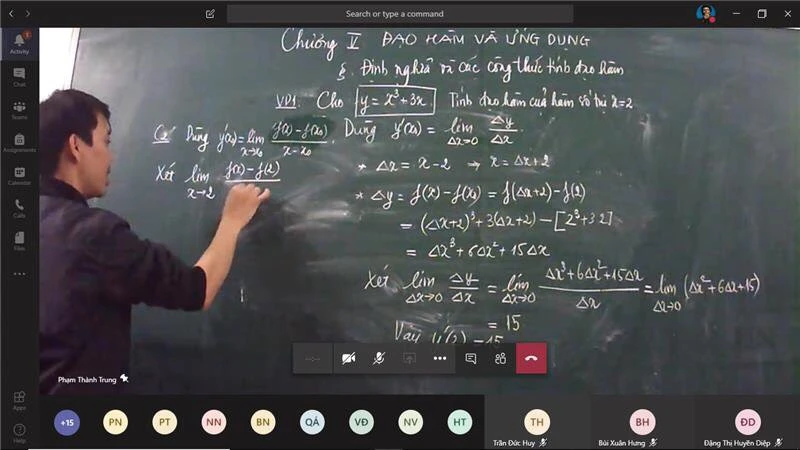 Search or type a command
Activity
Chat
Teams
Assignments
Calendar
Calls
Files
Apps
Help
Chương V ĐẠO HÀM VÀ ỨNG DỤNG
§. Định nghĩa và các công thức tính đạo hàm
VD1. Cho y = x³+3x. Tính đạo hàm của hàm số tại x=2
C2 Dùng y'(x₀)=lim x→x₀ f(x)-f(x₀) / x-x₀
Xét lim x→2 f(x)-f(2)
Dùng y'(x₀) = lim Δx→0 Δy/Δx
* Δx = x-2 → x = Δx+2
* Δy = f(x)-f(x₀) = f(Δx+2)-f(2)
= (Δx+2)³+3(Δx+2)-[2³+3.2]
= Δx³+6Δx²+15Δx
Xét lim Δx→0 Δy/Δx = lim Δx→0 Δx³+6Δx²+15Δx / Δx = lim Δx→0 (Δx²+6Δx+15)
= 15
Vậy y'(2) = 15
Phạm Thành Trung
+15
PN
PT
NN
BN
QÁ
VĐ
NV
HT
TH
Trần Đức Huy
BH
Bùi Xuân Hưng
ĐD
Đặng Thị Huyền Diệp